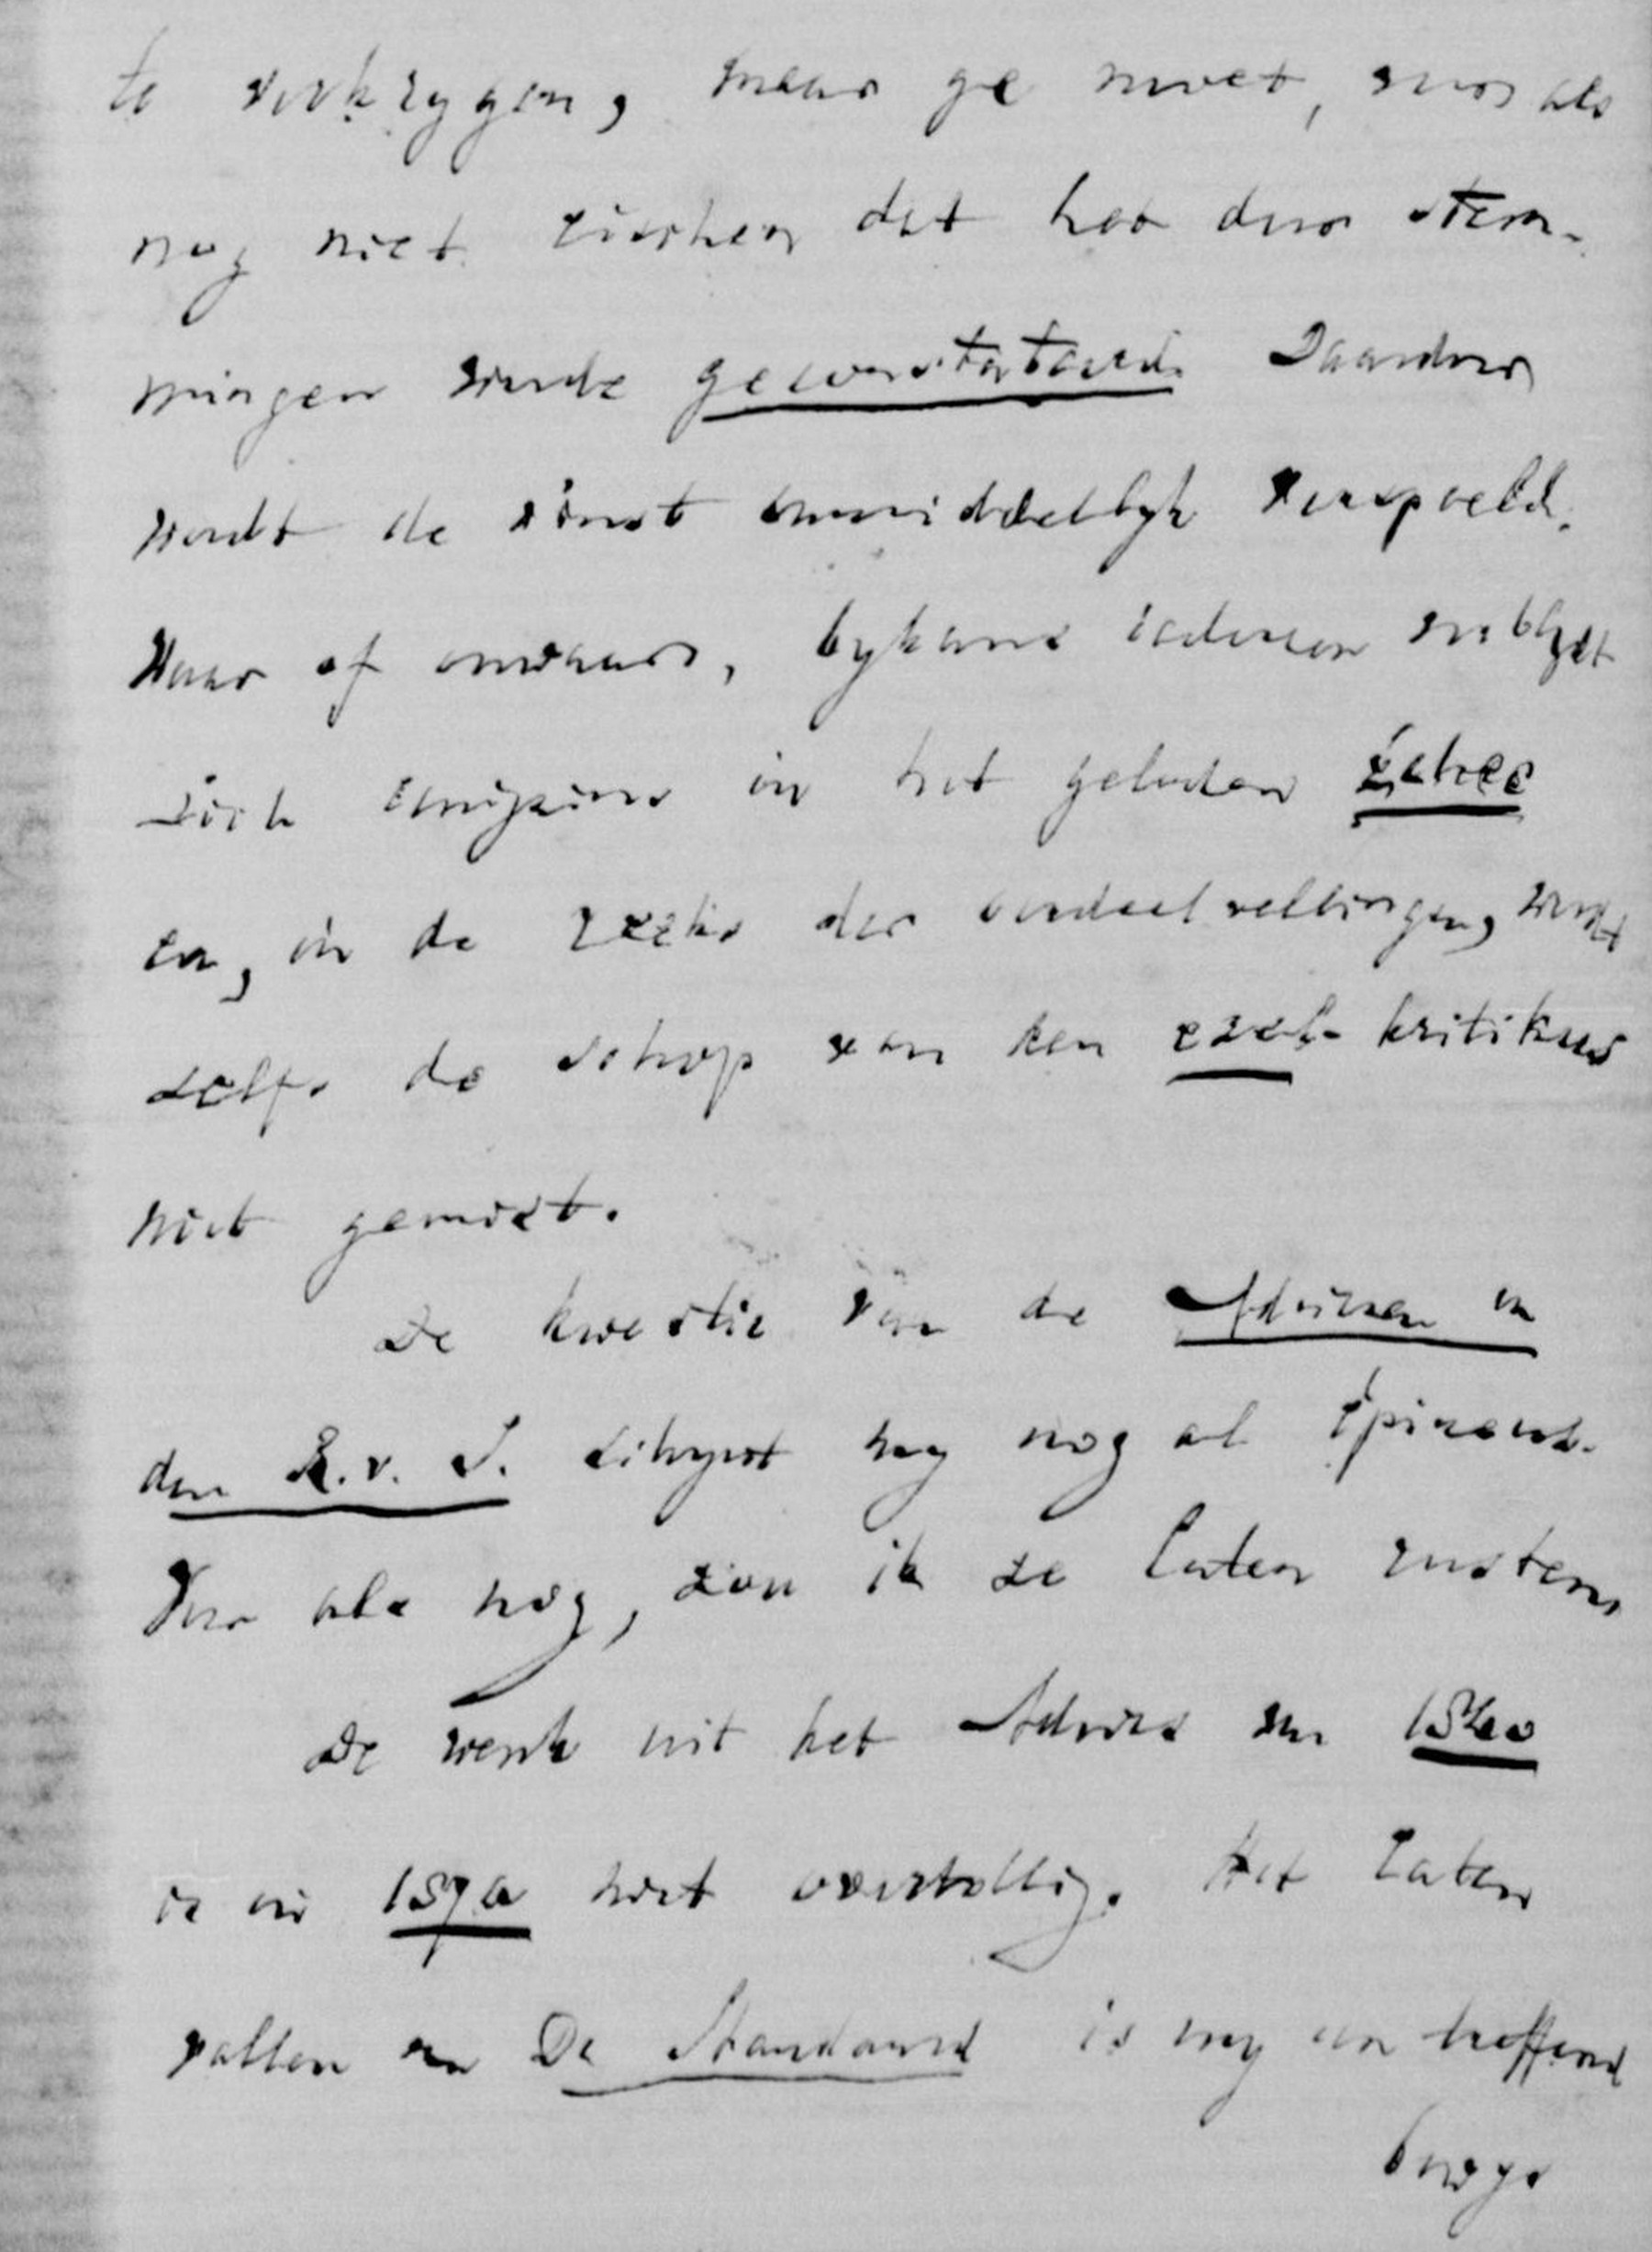 te verkrygen, maar ge moet, voor als
nog niet eischen dat het door stem-
mingen worde geconstateerd. Daardoor
wordt de winst onmiddellyk verspeeld.
Waar of onwaar, bykans iedereen verblydt
zich enigzins in het geleden échec
en, in de reeks der oordeelvellingen, wordt
zelfs de schop van een ezel-kritikus
niet gemist.
De kwestie van de Adviezen in
den R.v.S. schynt my nog al épineus.
Voor als nog, zou ik ze laten rusten.
De wenk uit het Advies van 1840
is in 1870 niet overtollig. Het laten
vallen van De Standaard is my een treffend
bewys